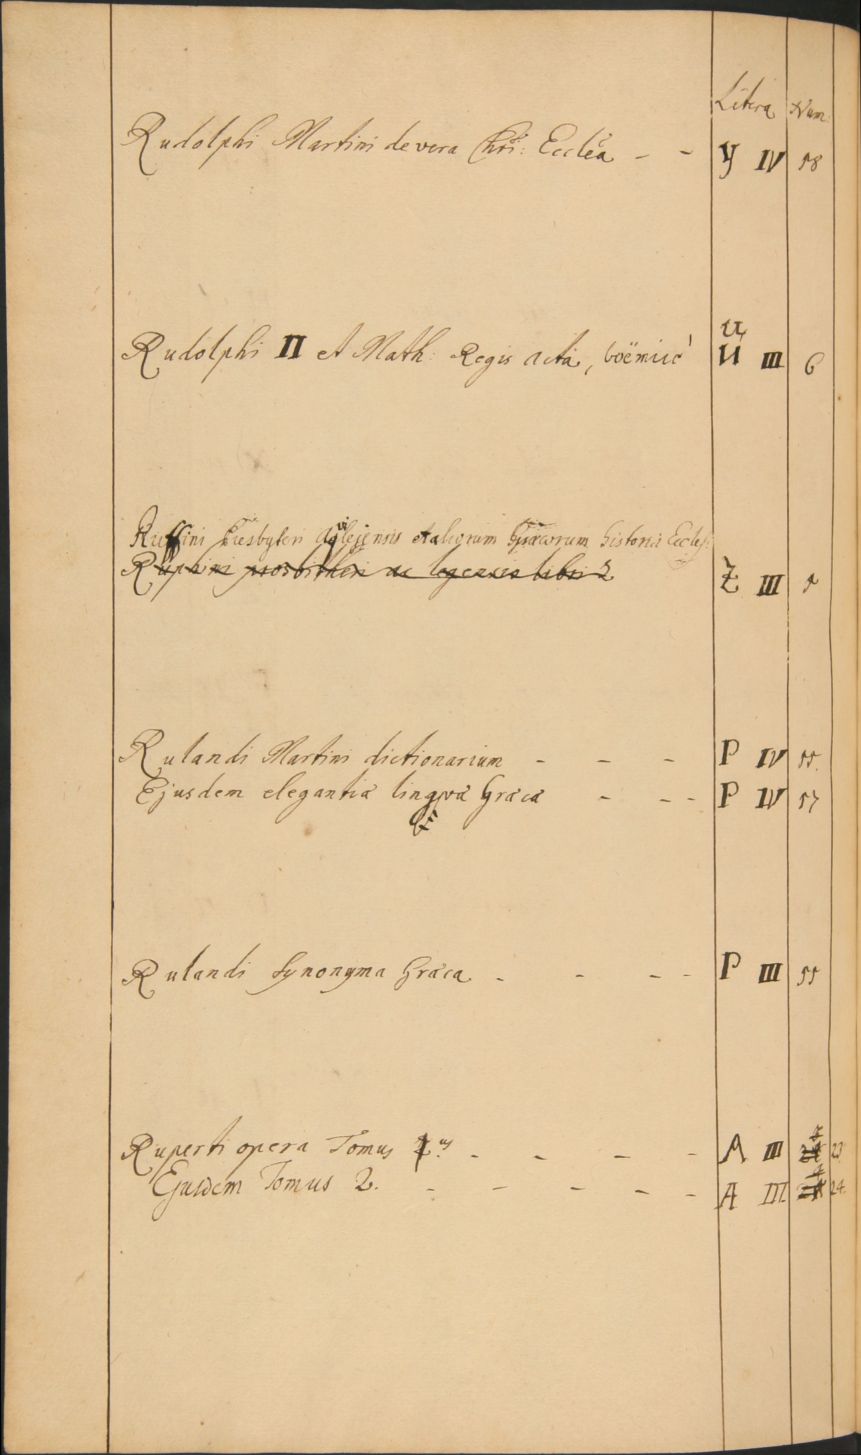 Litera Num
Rudolphi Martini de vera Chri: Ecclea - - Y IV 18
U
Rudolphi II et Math: Regis acta, boëmicè U III 6
Ruffini Presbyteri Aqvilejensis et aliorum Graecorum historia Eccles:
Ruphini presbitheri ac legensis libri 2 Z III 1
Rulandi Martini dictionarium - - - P IV 15.
Ejusdem elegantia lingvæ Græcæ - - - P IV 17
Rulandi Synonyma Græca - - - - P III 11
Ruperti opera Tomus 1us - - - - A III 23
Ejusdem Tomus 2. - - - - - A III 24.